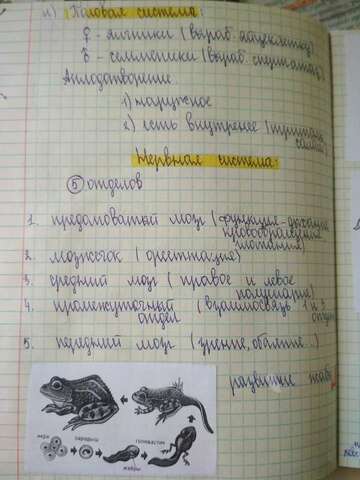 и) Половая система:
♀ - яичники (выраб. яйцеклетку)
♂ - семенники (выраб. сперматоз.)
Оплодотворение
1) наружное
2) есть внутренее (тритоны,
Нервная система:
5 отделов
1. продолговатый мозг (функция - дыхание,
кровообращение
глотание)
2. мозжечок (ориентация)
3. средний мозг (правое и левое
полушарие)
4. промежуточный (взаимосвязь 1 и 3
отдел
5. передний мозг (зрение, обаяние..)
развитие жабы
икра зародыш головастик
жабры